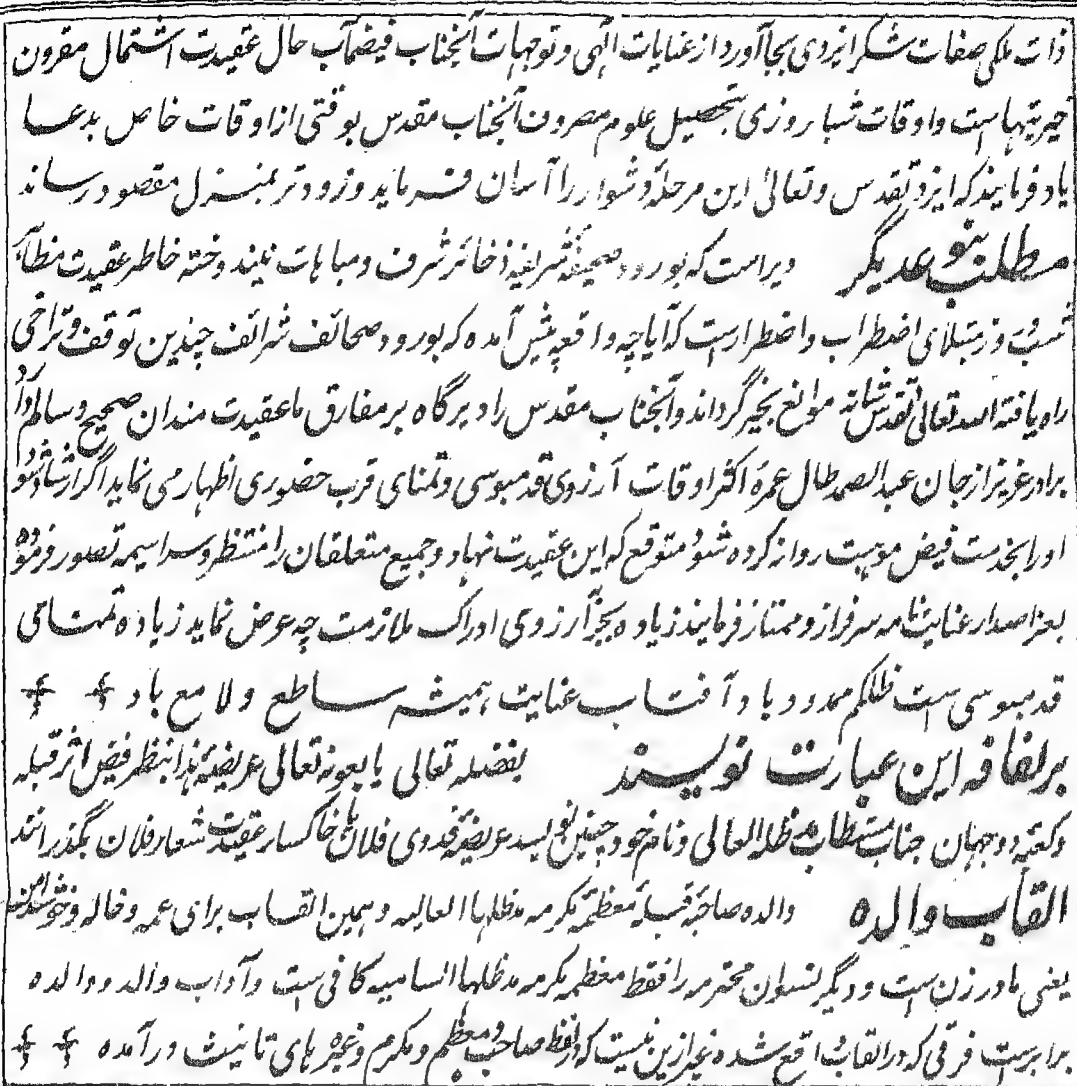 ذات ملکی صفات شکر ایزدی بجا آورد از عنایات الٰهی و توجهات آنجناب فیضمآب حال عقیدت اشتمال مقرون
خیریتهاست و اوقات شباروزی بتحصیل علوم مصروف آنجناب مقدس بوقتی از اوقات خاص بدعا
یاد فرمایند که ایزد تقدس و تعالیٰ این مرحلهٔ دشوار را آسان فرماید و زودتر بمنزل مقصود رساند
مطلب بنوعدیگر دیر است که بورود صحیفهٔ شریفه ذخائر شرف و مباهات نیندوخته خاطر عقیدت مظاهر
شب و روز مبتلای اضطراب و اضطرارست که آیا چه واقعه پیش آمده که بورود صحائف شرائف چندین توقف و تراخی
راه یافته الله تعالیٰ تقدس شانه موانع بخیر گرداند و آنجناب مقدس را دیرگاه بر مفارق ما عقیدت مندان صحیح و سالم دارد
برادر عزیز از جان عبدالصمد طال عمره اکثر اوقات آرزوی قدمبوسی و تمنای قرب حضوری اظهار می نماید اگر ارشاد شود
او را بخدمت فیض موهبت روانه کرده شود متوقع که این عقیدت نهاد و جمیع متعلقان را منتظر و سراسیمه تصور فرموده
بعز اصدار عنایتنامه سرفراز و ممتاز فرمایند زیاده بجز آرزوی ادراک ملازمت چه عرض نماید زیاده تمنای
قدمبوسی ست ظلکم ممدود باد و آفتاب عنایت همیشه ساطع و لامع باد
بر لفافه این عبارت نویسند بفضله تعالی یا بعونه تعالی عریضهٔ هذا بنظر فیض اثر قبله
و کعبهٔ دوجهان جناب مستطاب مد ظله العالی و نام خود چنین نویسد عریضهٔ فدوی فلان یا خاکسار عقیدت شعار فلان بگذرانند
القاب والده والده صاحبه قبلهٔ معظمه مکرمه مدظلها العالیه و همین القاب برای عمه و خاله و خوشدامن
یعنی مادر زن است و دیگر نسوان محترمه را فقط معظمه مکرمه مدظلها السامیه کافی ست و آداب والد و والده
برابرست فرقی که در القاب واقع شده بجز ازین نیست که در لفظ صاحب و معظم و مکرم و غیره های تانیث درآمده